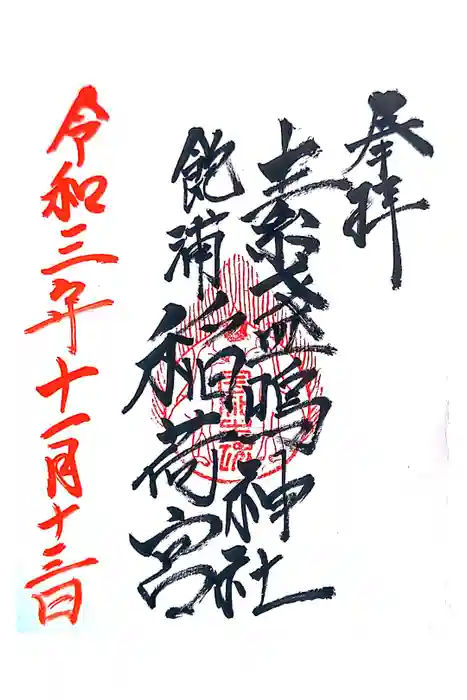 奉拝
素盞嗚神社
飽浦稲荷宮
令和三年十一月十三日